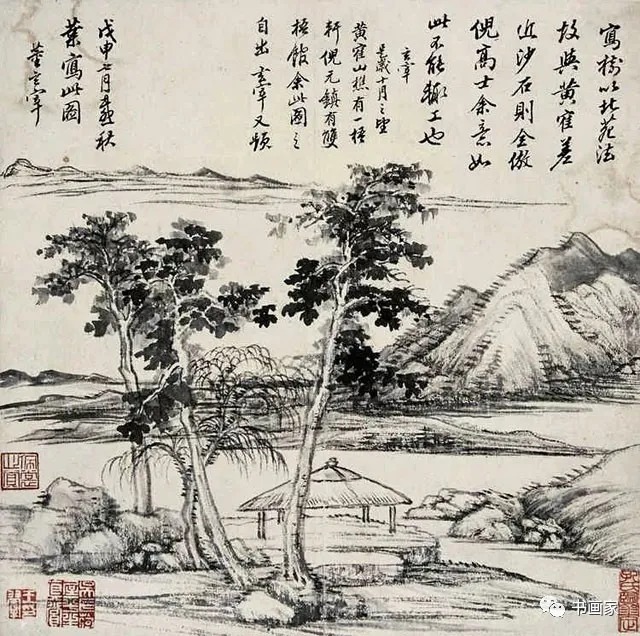 寫樹以北苑法
故與黃隺差
近沙石則全倣
倪高士余意如
此不能輒工也
玄宰
是歲十月之望
黃隺山樵有一梧
軒倪元鎮有雙
梧館余此圖之
自出 玄宰又題
戊申 月 秋
葉寫此圖
董玄宰
书画家